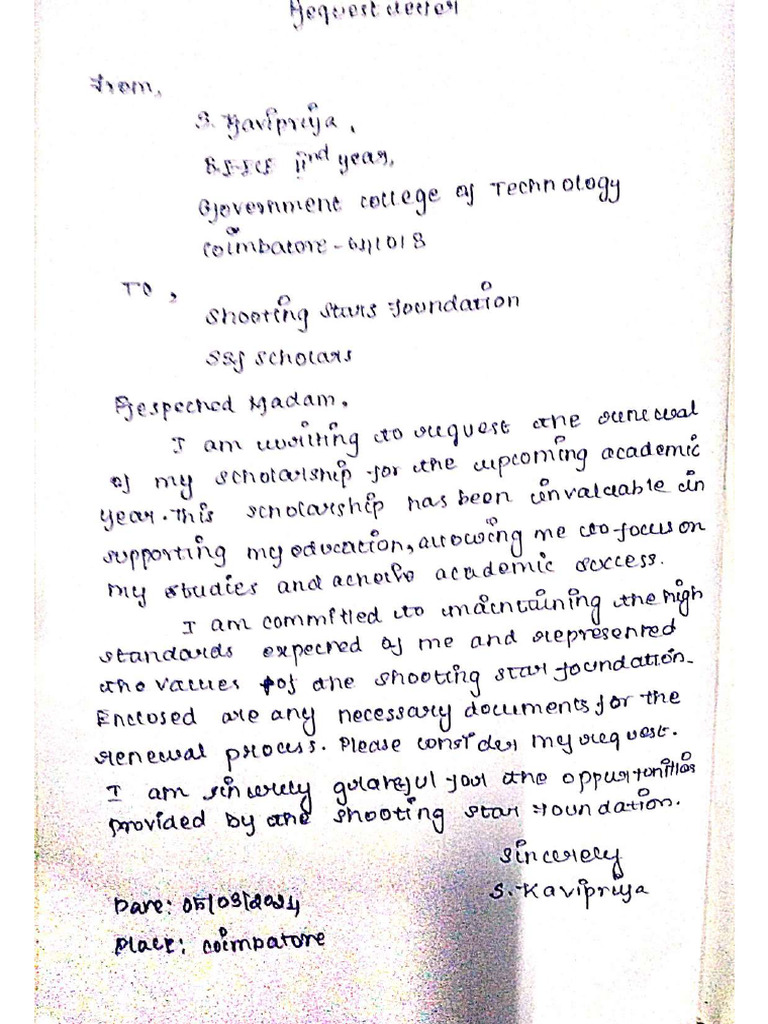 Request Letter
From,
S. Kavipriya,
IInd year,
Government college of Technology
Coimbatore - 641018
To,
Shooting Stars Foundation
SSF Scholars
Respected Madam,
I am writing to request the renewal
of my scholarship for the upcoming academic
year. This scholarship has been invaluable in
supporting my education, allowing me to focus on
my studies and acheive academic success.
I am committed to maintaining the high
standards expected of me and represented
the values of the shooting star foundation.
Enclosed are any necessary documents for the
renewal process. Please consider my request.
I am sincerely grateful for the oppurtunities
provided by the shooting star Foundation.
Sincerely
S. Kavipriya
Date: 05/09/2024
Place: Coimbatore